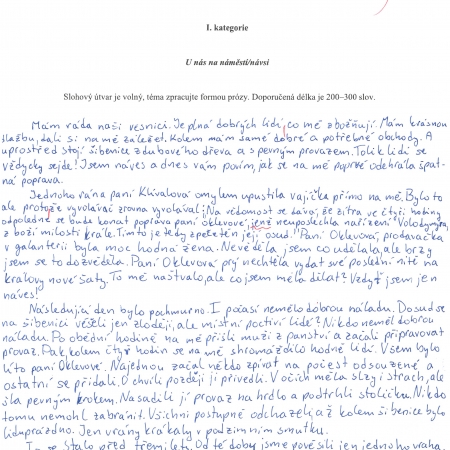 I. kategorie
U nás na náměstí/návsi
Slohový útvar je volný, téma zpracujte formou prózy. Doporučená délka je 200–300 slov.
Mám ráda naši vesnici. Je plná dobrých lidí, co mě zbožňují. Mám krásnou
dlažbu, dali si na mě záležet. Kolem mám samé dobré a potřebné obchody. A
uprostřed stojí šibenice z dubového dřeva a s pevným provazem. Tolik lidí se
vždycky sejde! Jsem náves a dnes vám povím, jak se na mě poprvé odehrála špat-
ná poprava.
Jednoho rána paní Khivalova omylem upustila vajíčka přímo na mě. Bylo to
ale protože vyvolávač zrovna vyvolával: „Na vědomost se dává, že zítra ve čtyři hodiny
odpoledne se bude konat poprava paní Oklevové, jenž neuposlechla nařízení Volodymíra,
z boží milosti krále. Tímto je tedy zpečetěn její osud." Paní Oklevová, prodavačka
v galanterii byla moc hodná žena. Nevěděla jsem co udělala, ale brzy
jsem se to dozvěděla. Paní Oklevová prý nechtěla vydat své poslední nitě na
královy nové šaty. To mě naštvalo, ale co jsem měla dělat? Vždyť jsem jen
náves!
Následující den bylo pochmurno. I počasí nemělo dobrou náladu. Dosud se
na šibenici věšeli jen zloději, ale místní poctiví lidé? Nikdo neměl dobrou
náladu. Po obědní hodině na mě přišli muži z panství a začali připravovat
provaz. Pak, kolem čtyř hodin se na mě shromáždilo hodně lidí. Všem bylo
líto paní Oklevové. Najednou začal někdo zpívat na počest odsouzené a
ostatní se přidali. O chvíli později ji přivedli. V očích měla slzy i strach, ale
šla pevným krokem. Nasadili jí provaz na hrdlo a podtrhli stoličku. Nikdo
tomu nemohl zabránit. Všichni postupně odcházeli, až kolem šibenice bylo
liduprázdno. Jen vrány krákaly v podzimním smutku.
To se stalo před třemi lety. Od té doby jsme pověsili jen jednoho vraha.